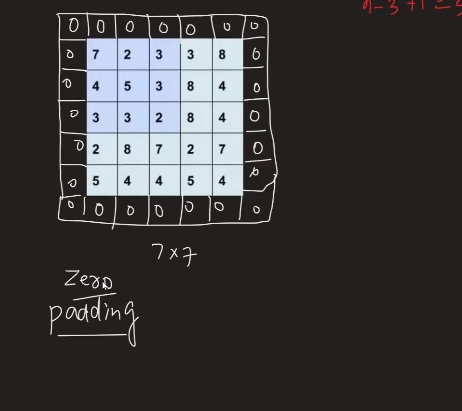 n-3+1=5
0 0 0 0 0 0 0
0 7 2 3 3 8 0
0 4 5 3 8 4 0
0 3 3 2 8 4 0
0 2 8 7 2 7 0
0 5 4 4 5 4 0
0 0 0 0 0 0 0
7×7
Zero
padding